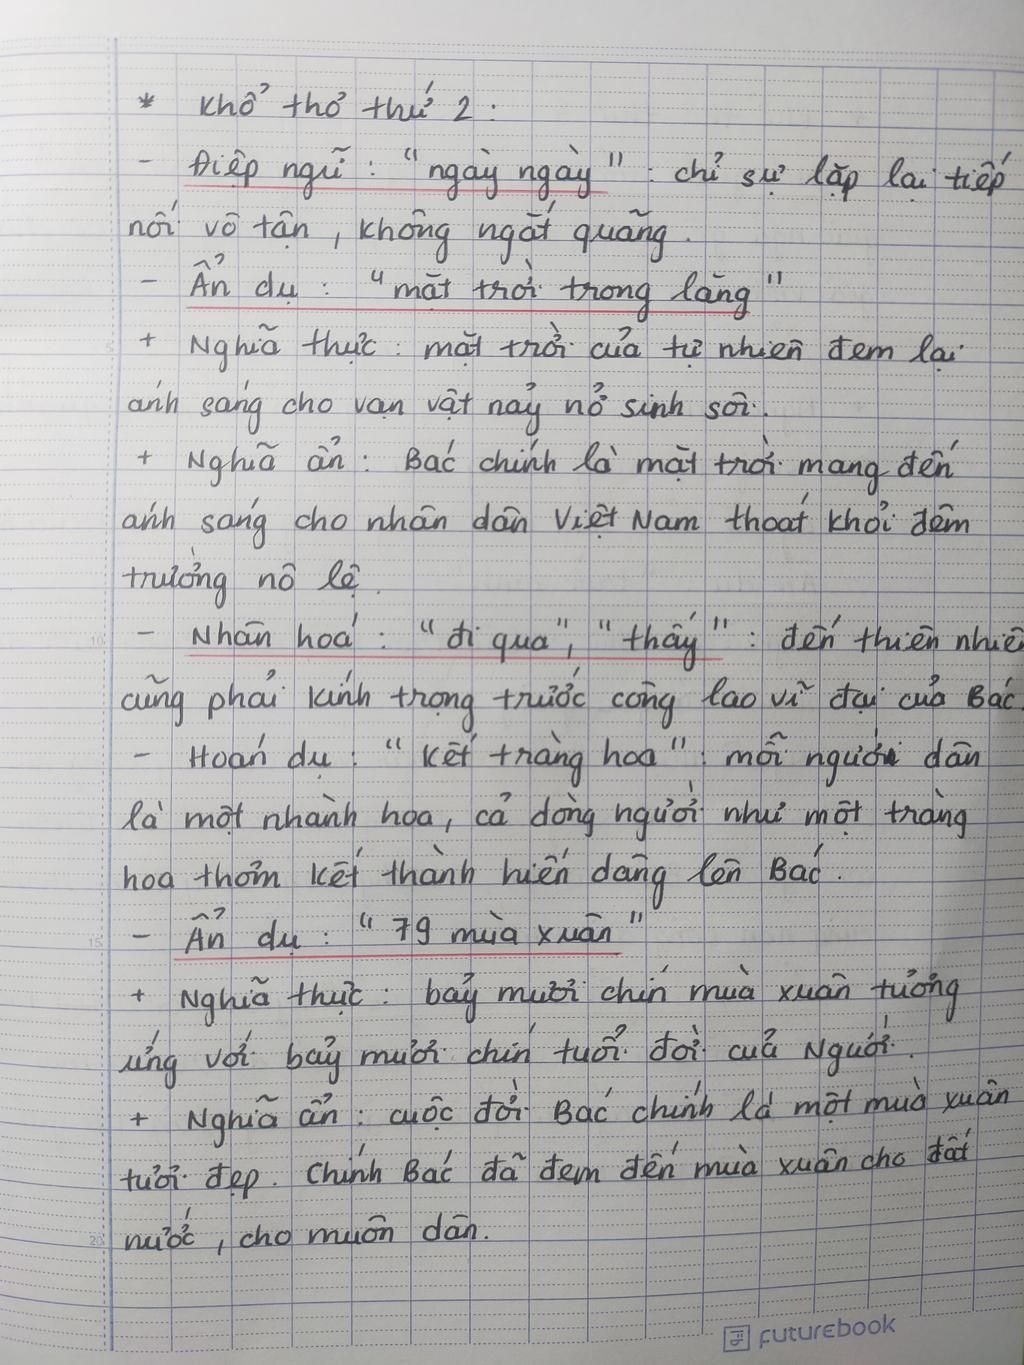 * Khổ thơ thứ 2 :
- Điệp ngữ : "ngày ngày" : chỉ sự lặp lại tiếp
nối vô tận , không ngắt quãng .
- Ẩn dụ : "mặt trời trong lăng"
+ Nghĩa thực : mặt trời của tự nhiên đem lại
ánh sáng cho vạn vật nảy nở sinh sôi .
+ Nghĩa ẩn : Bác chính là mặt trời mang đến
ánh sáng cho nhân dân Việt Nam thoát khỏi đêm
trường nô lệ .
- Nhân hoá : "đi qua", "thấy" : đến thiên nhiê
cũng phải kính trọng trước công lao vĩ đại của Bác.
- Hoán dụ : "Kết tràng hoa" : mỗi người dân
là một nhành hoa, cả dòng người như một tràng
hoa thơm kết thành hiến dâng lên Bác .
- Ẩn dụ : "79 mùa xuân"
+ Nghĩa thực : bảy mươi chín mùa xuân tương
ứng với bảy mươi chín tuổi đời của Người .
+ Nghĩa ẩn : cuộc đời Bác chính là một mùa xuân
tươi đẹp . Chính Bác đã đem đến mùa xuân cho đất
nước , cho muôn dân .
5
10
15
20
FUTUREBOOK